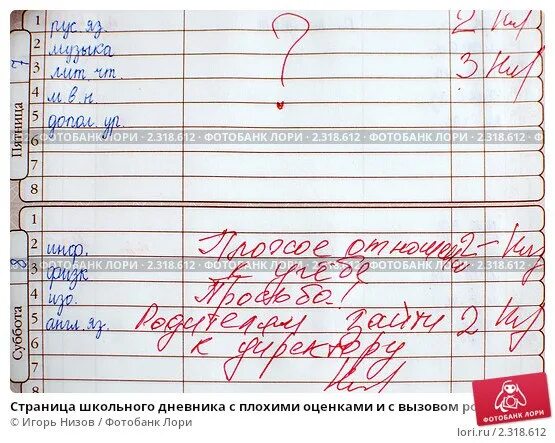 1 рус. яз. 2- Низ
2 музыка
3 лит. чт. ? 3 Низ
4 м в н.
5 допол. ур.
ФОТОБАНК ЛОРИ - 2.318.612 · ФОТОБАНК ЛОРИ - 2.318.612 · ФОТОБАНК ЛОРИ - 2.318.612
6
7
8
Пятница 7
1
2 инф. Плохое отношен 2- Низ
ФОТОБАНК ЛОРИ - 2.318.612 · ФОТОБАНК ЛОРИ - 2.318.612 · ФОТОБАНК ЛОРИ - 2.318.612
3 физк к учебе
4 изо. Просьба!
5 англ. яз. Родителям зайти 2 Низ
6 к директору
7 Низ
8
Суббота 8
Страница школьного дневника с плохими оценками и с вызовом ро
© Игорь Низов / Фотобанк Лори
ФОТОБАНК ЛОРИ
lori.ru / 2.318.612